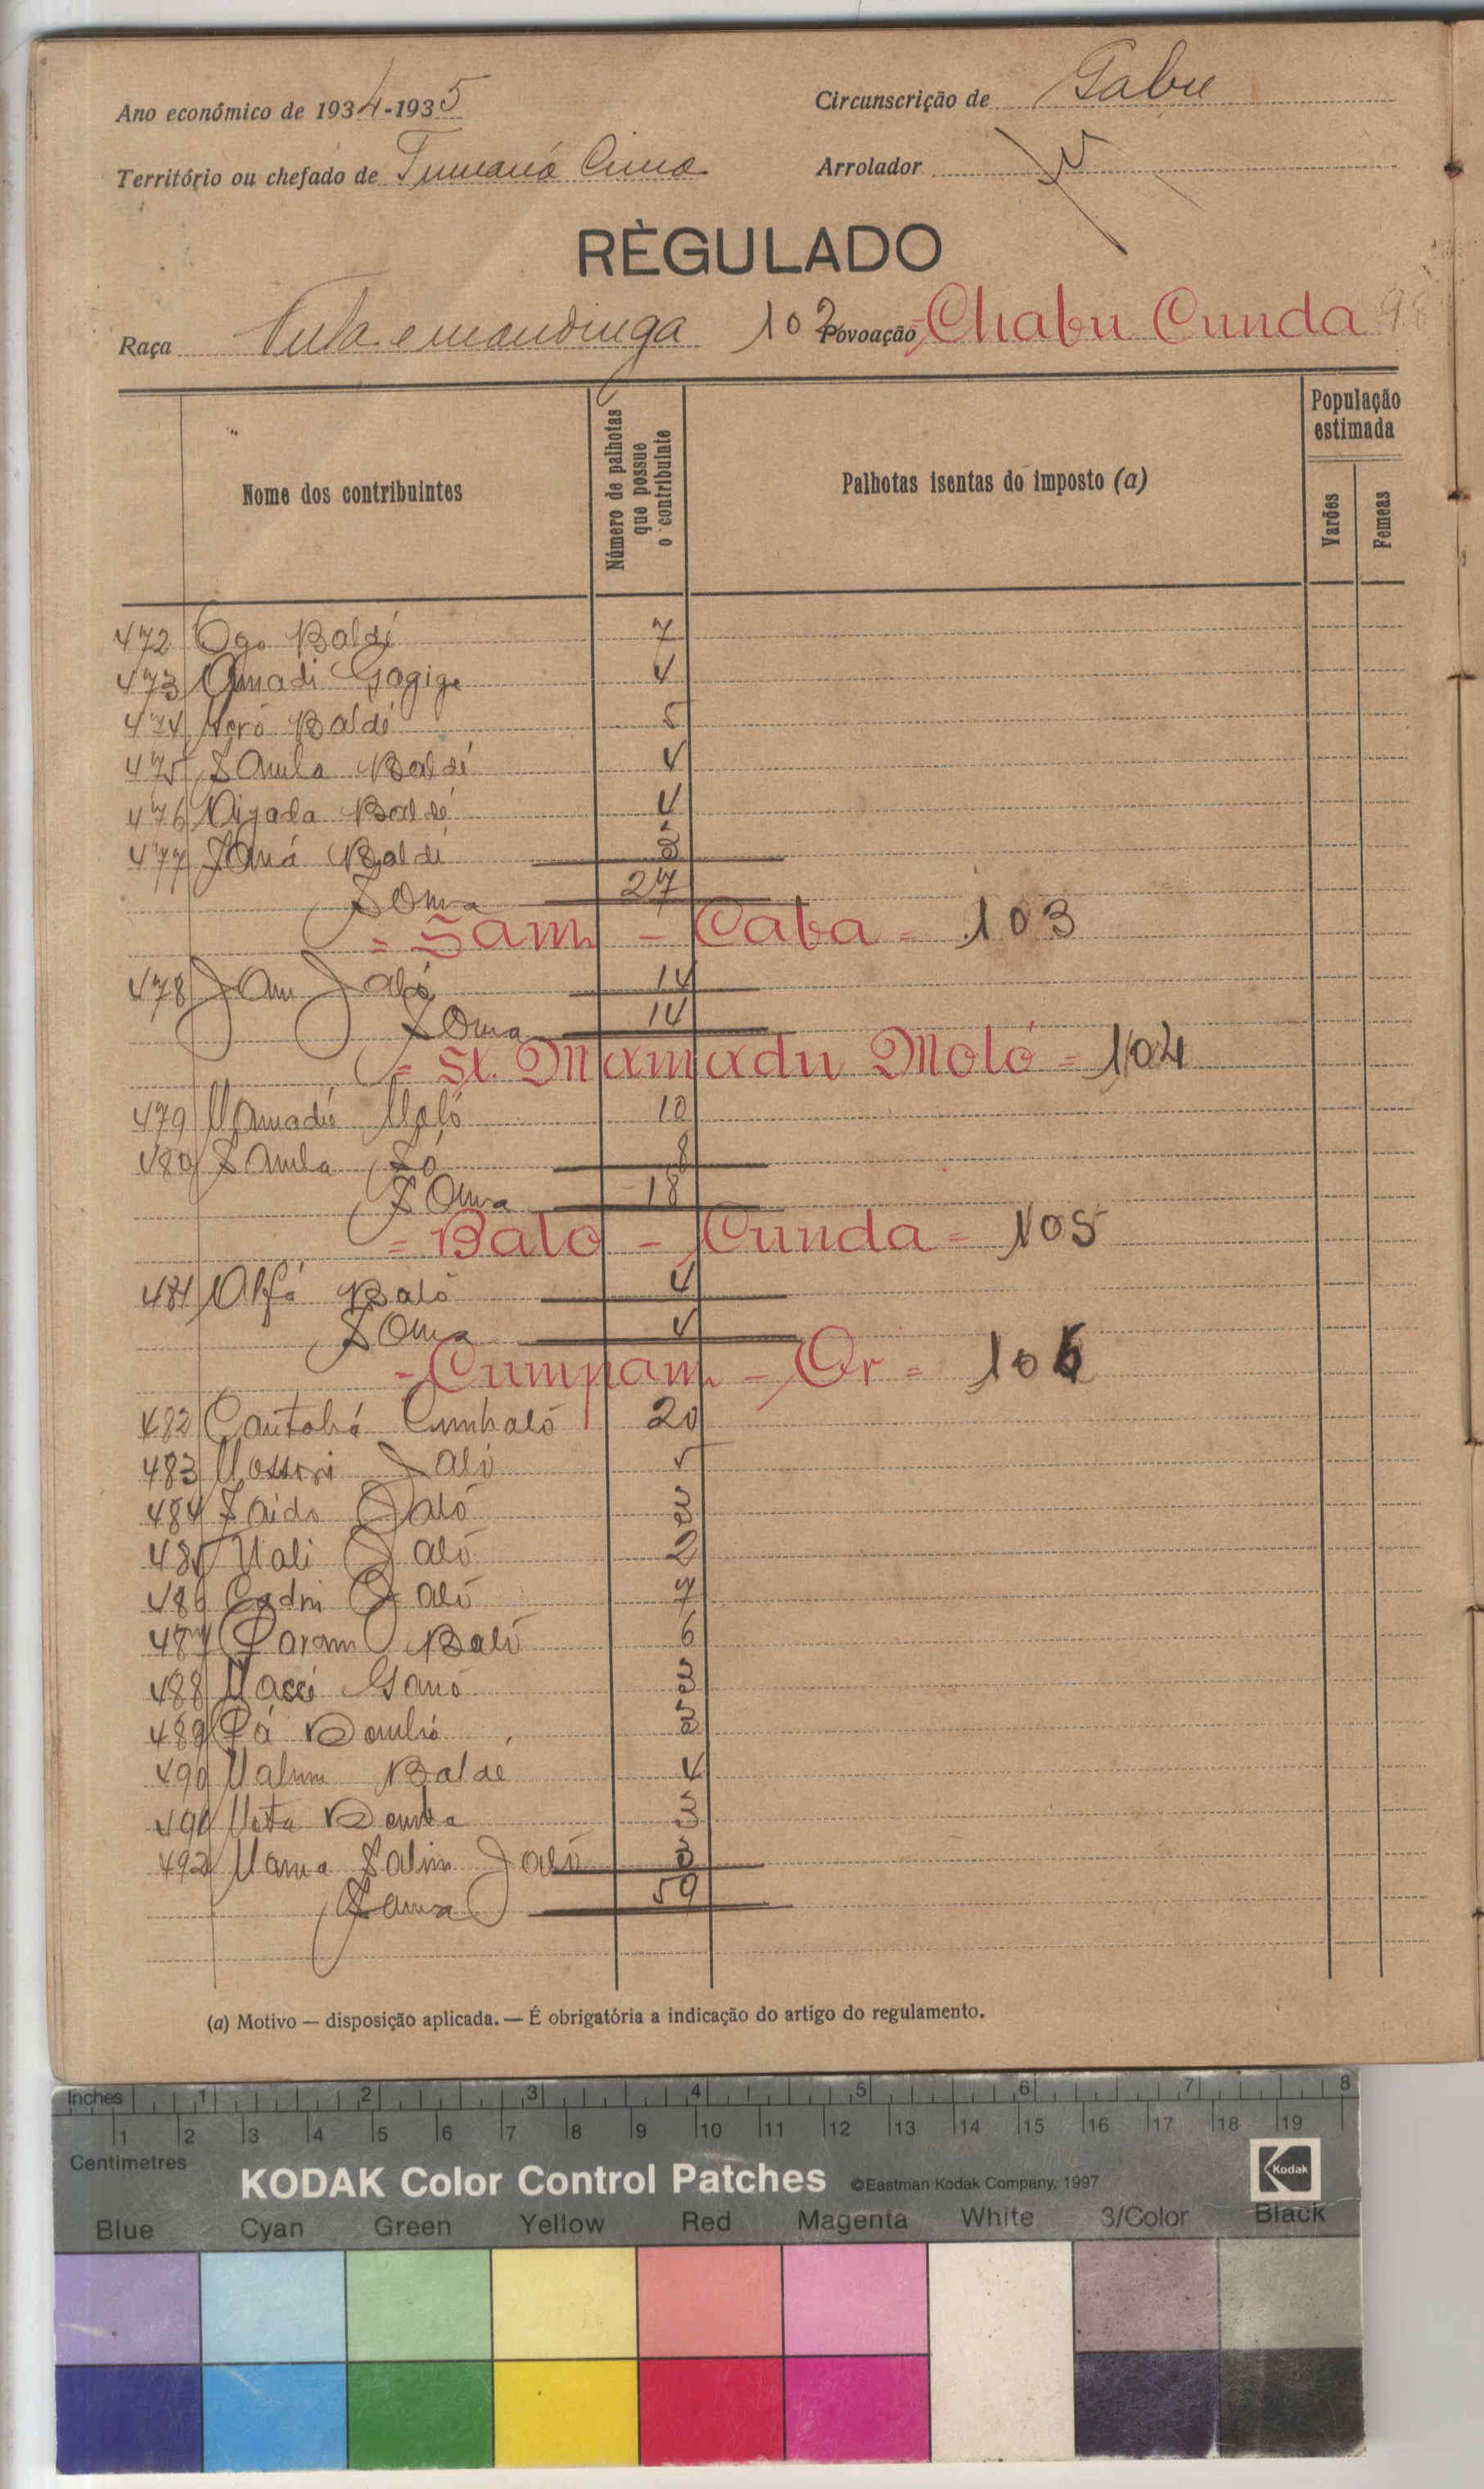 Ano económico de 1934-1935 Circunscrição de Gabu
Território ou chefado de Tumaná Cima Arrolador
RÈGULADO
Raça Fula e mandinga 102 Povoação Chabu Cunda 98
Nome dos contribuintes
Número de palhotas que possue o contribuinte
Palhotas isentas do imposto (a)
População estimada
Varões
Femeas
472 Ogo Baldé 7
473 Amadi Gagige 4
474 Baldé 5
475 Samba Baldé 4
476 Baldé 4
477 Baldé 3
Soma 27
= Sam - Caba = 103
478 Jam Jaló 14
Soma 14
= St. Mamadu Moló = 104
479 Mamadú Moló 10
480 Samba Só 8
Soma 18
= Baló - Cunda = 105
481 Alfá Baló 4
Soma 4
- Cumpam - Or = 106
482 20
483 Jaló 5
484 Saido Jaló 3
485 Uali Jaló 2
486 Jaló 7
487 Baló 6
488 Ganó 3
489 2
490 Baldé 4
491 Demba
492 Jaló
Soma 59
(a) Motivo — disposição aplicada. — É obrigatória a indicação do artigo do regulamento.
Inches 1 2 3 4 5 6 7 8
1 2 3 4 5 6 7 8 9 10 11 12 13 14 15 16 17 18 19
Centimetres
KODAK Color Control Patches ©Eastman Kodak Company, 1997 Kodak
Blue Cyan Green Yellow Red Magenta White 3/Color Black